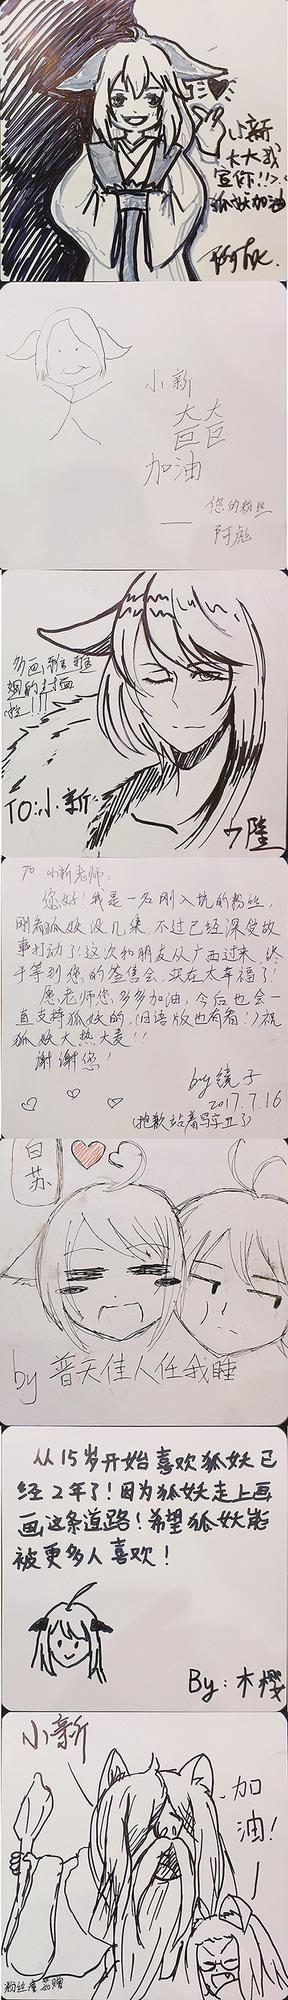 小新
大大我
宣你!!
狐妖加油
小新
大大
巨巨
加油
您的粉丝
——阿彪
多画雅雅
姐的封面
啦!!!
TO:小新
TO 小新老师:
您好!我是一名刚入坑的粉丝,
刚看狐妖没几集,不过已经深受故
事打动了!这次和朋友从广西过来,终
于等到您的签售会,实在太幸福了!
愿老师您,多多加油,今后也会一
直支持狐妖的,(日语版也有看!)祝
狐妖大热大麦!!
谢谢您!
by 镜子
2017.7.16
(抱歉站着写字丑了)
白
苏
by 普天佳人任我睡
从15岁开始喜欢狐妖已
经2年了!因为狐妖走上画
画这条道路!希望狐妖能
被更多人喜欢!
By:木樱
小新
加
油!